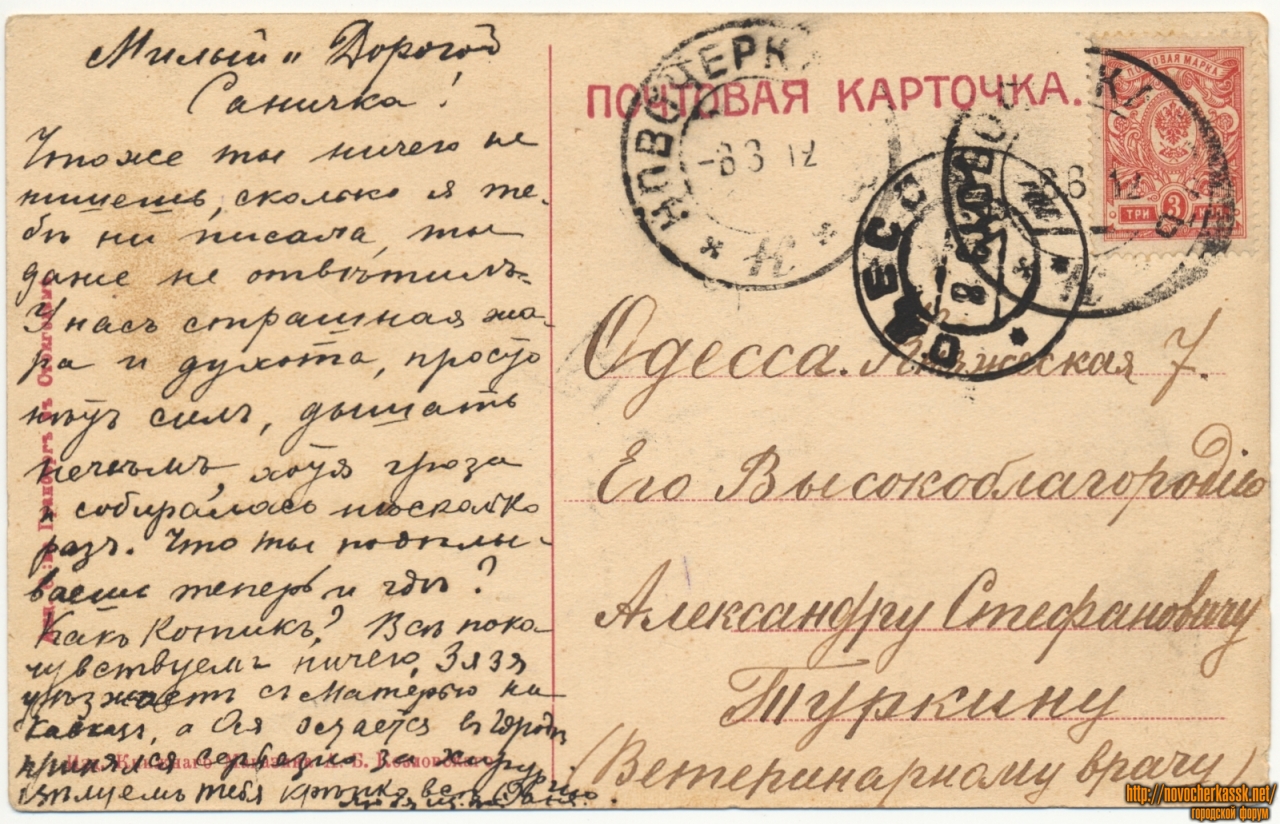 Милый и Дорогой
Саничка!
Чтоже ты ничего не
пишешь, сколько я те-
бѣ ни писала, ты
даже не отвѣтилъ.
У насъ страшная жа-
ра и духота, просто
нѣтъ силъ, дышать
нечѣмъ, хотя гроза
и собиралась нѣсколько
разъ. Что ты подѣлы-
ваешь теперь и гдѣ?
Какъ Котикъ? Всѣ пока
чувствуемъ ничего, Зязя
уѣзжаетъ съ матерью на
Кавказъ, а Ося остается въ городѣ
принялся серьезно за
цѣлуемъ тебя крѣпко всѣ
ПОЧТОВАЯ КАРТОЧКА.
НОВОЧЕРК
-8 3 12
ОДЕССА
ПОЧТОВАЯ МАРКА
ТРИ 3 КОП
Одесса. Княжеская 7.
Его Высокоблагородію
Александру Стефановичу
Туркину
(Ветеринарному врачу)
Изд. Книжнаго Магазина Б.
http://novocherkassk.net/
городской форум